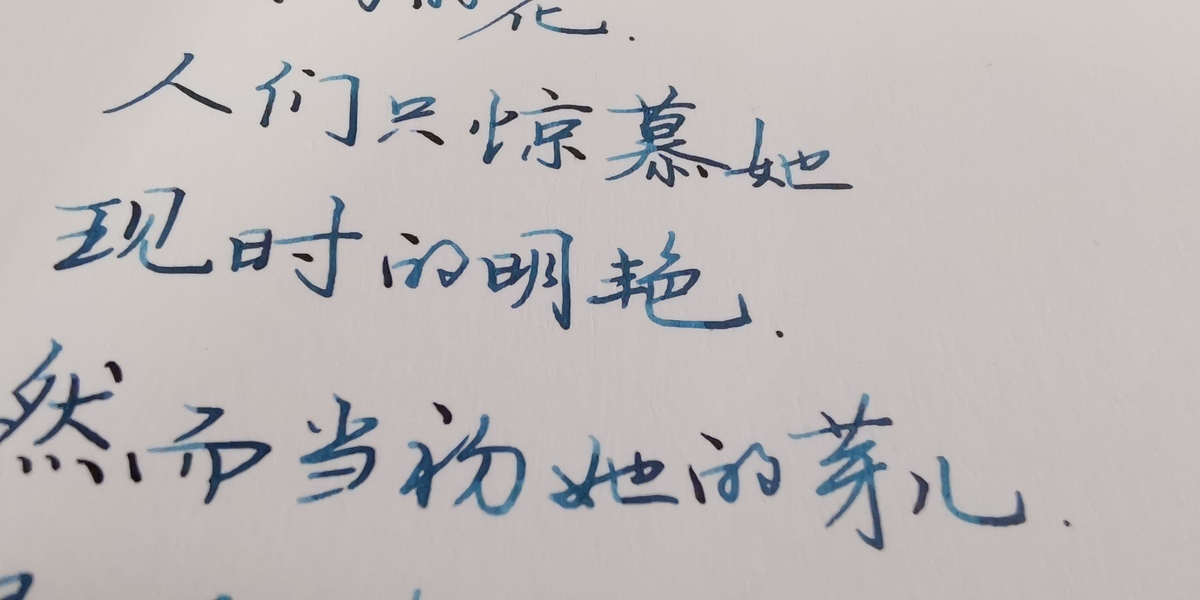 花.
人们只惊慕她
现时的明艳.
然而当初她的芽儿.